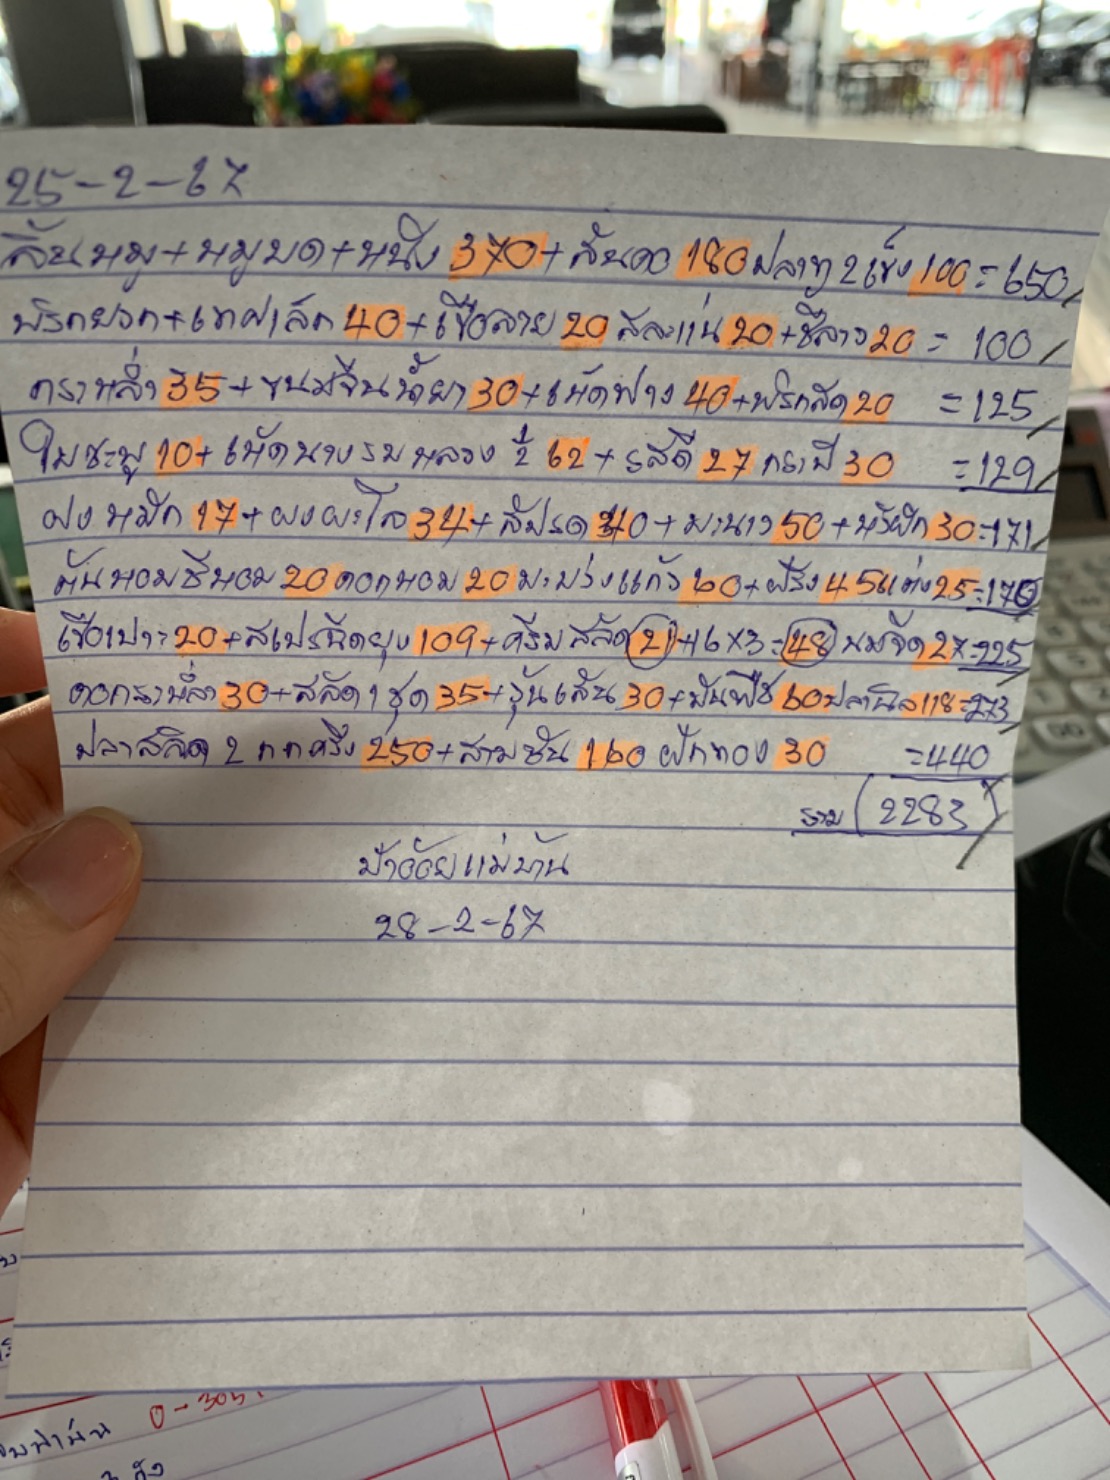 25-2-67
ลิ้นหมู+หมูบด+หนัง 370+สันคอ 180 ปลาทู 2 เข่ง 100=650
พริกหยวก+เทศเล็ก 40+เขือลาย 20 สะระแน่ 20+ชีลาว 20 = 100
กะหล่ำ 35+ขนมจีนน้ำยา 30+เห็ดฟาง 40+พริกสด 20 =125
ใบชะพู 10+เห็ดนางรมหลวง ½ 62+รสดี 27 กะปิ 30 =129
ผงหมัก 17+ผงพะโล้ 34+สัปรด 40+มะนาว 50+หัวผัก 30=171
ต้นหอมชีหอม 20 ดอกหอม 20 มะม่วงแก้ว 60+ฝรั่ง 45 แตง 25=170
เขือเปาะ 20+สเปรฉีดยุง 109+ครีมสลัด 21+16x3=48 นมจืด 27=225
ดอกกะหล่ำ 30+สลัด 1 ชุด 35+วุ้นเส้น 30+มันฟืช 60 ปลานิล 118=273
ปลาสลิด 2 กกครึ่ง 250+สามชั้น 160 ฝักทอง 30 =440
รวม 2283
ป้าอ้อยแม่บ้าน
28-2-67
0-305